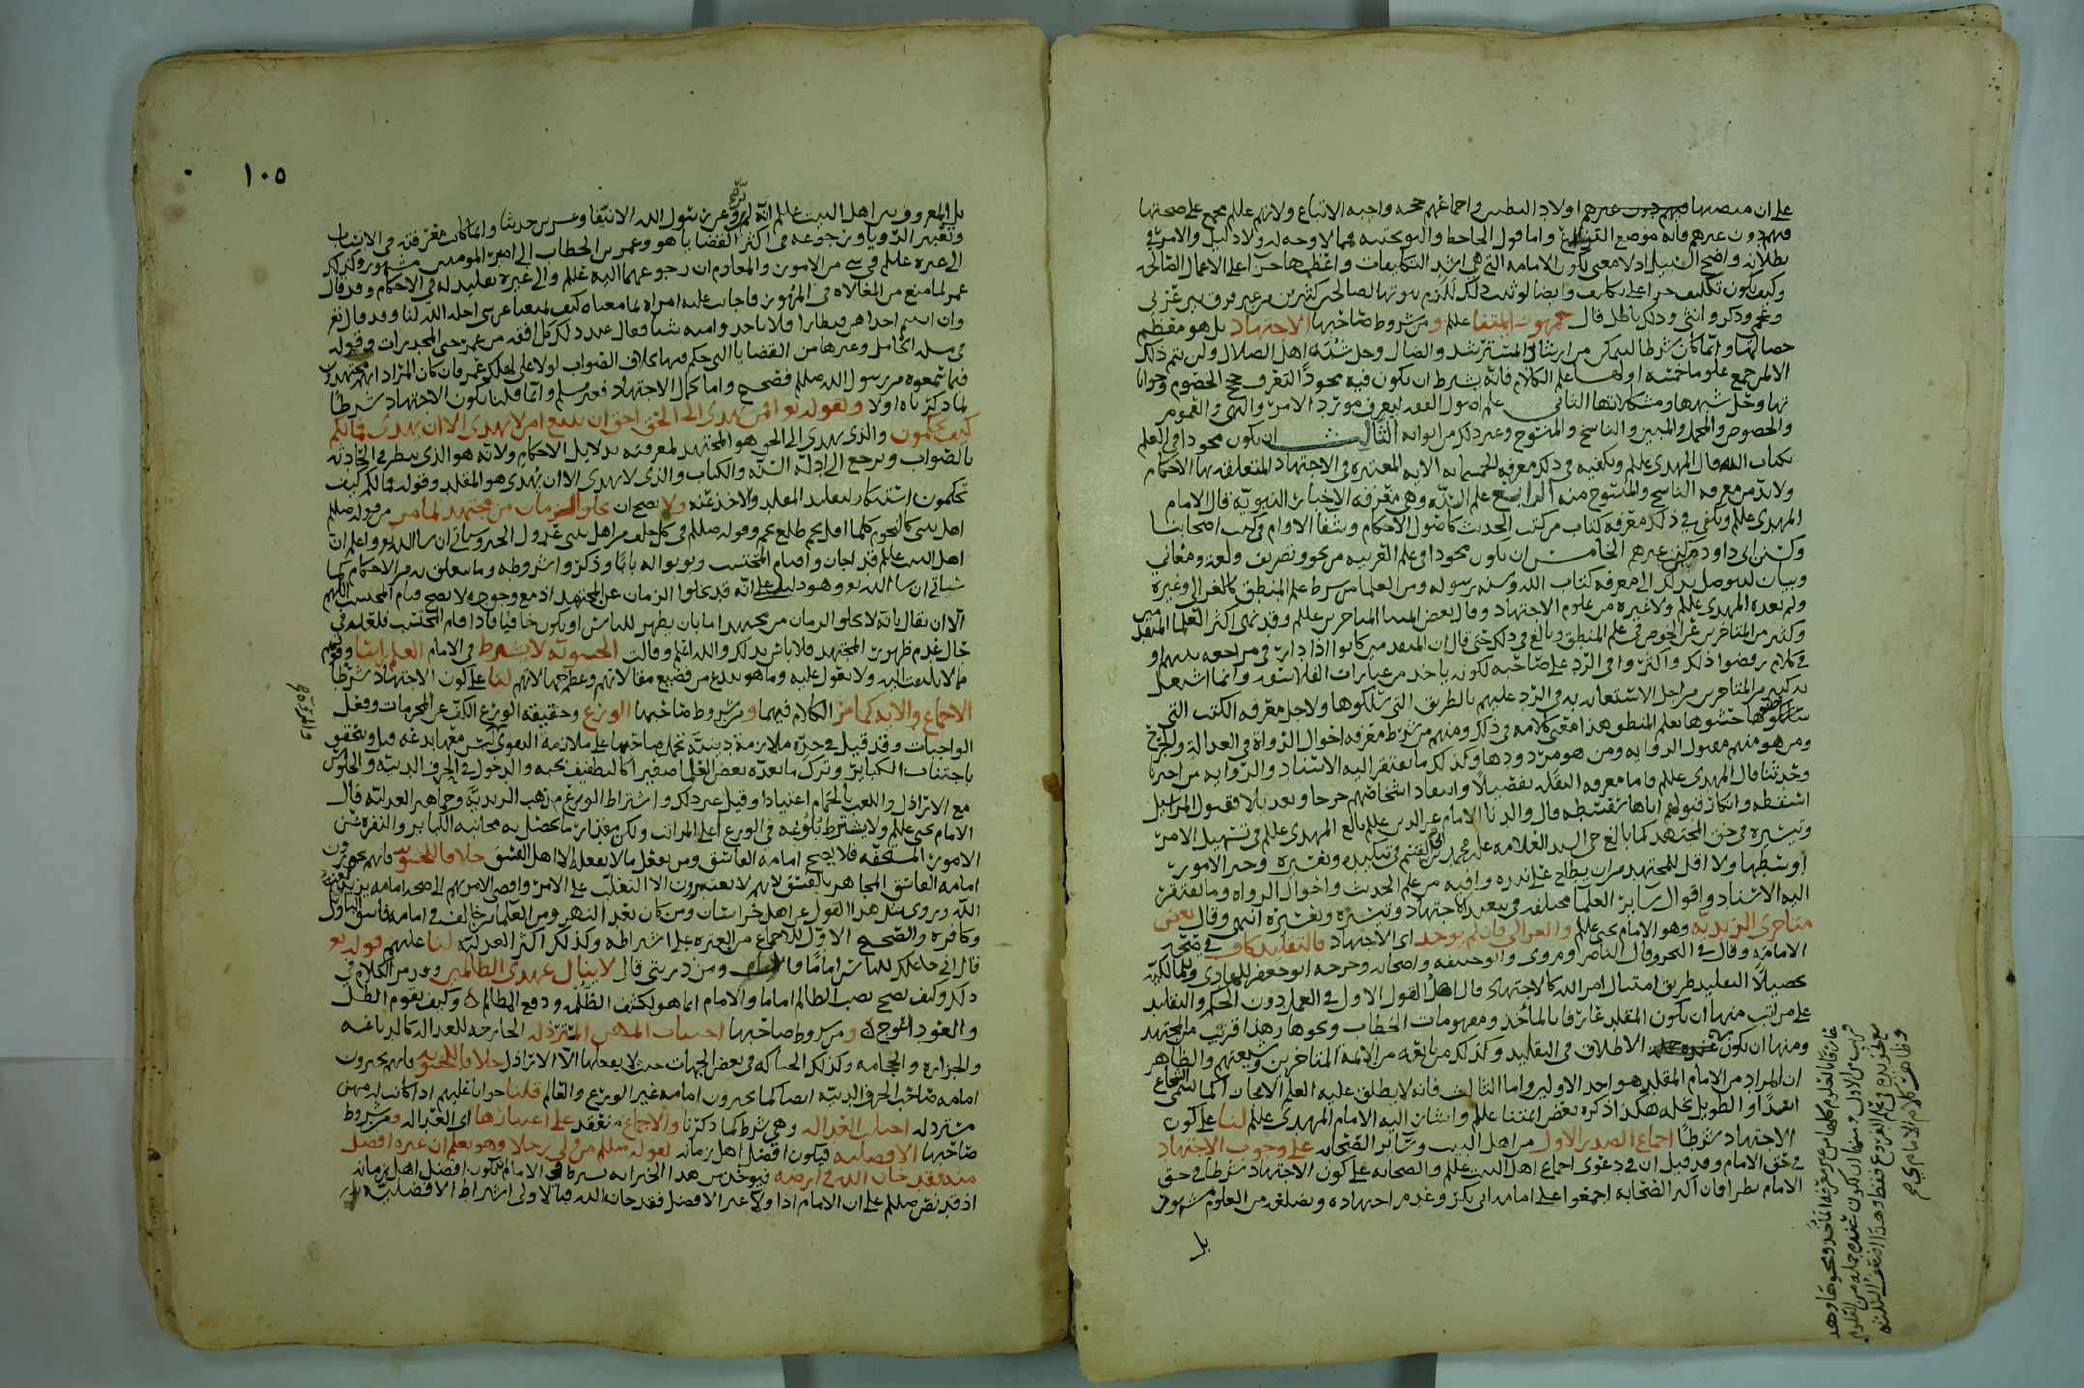 على ان منصبها فيهم دون غيرهم اولاد البطنين واجماعهم حجة واجبة الاتباع ولانهم عللم مجمع على صحتها
فيهم دون غيرهم فانه موضع التنازع واما قول الجاحظ والنوبختيه فمما لا وجه له ولا دليل والامر في
بطلانه واضح السبيل اذ لا معنى لكون الامامه التي هي اشد التكليفات واعظمها جزاء على الاعمال الصالحه
وكيف يكون تكليف جزاء على تكليف وايضا لو ثبت ذلك للزم ثبوتها لصالحين كثيرين من غير فرق بين عربي
وعجمي وذكر وانثى وذلك باطل قال جمهور ائمتنا عللم ومن شروط صاحبها الاجتهاد بل هو معظم
خصالها وانما كان شرطا ليتمكن من ارشاد المسترشد والضال وحل شبه اهل الضلال ولن يتم ذلك
الا لمن جمع علوما خمسه اولها علم الكلام فانه يشترط ان يكون فيه مجودا لتعرف حجج الخصوم وجوابا
تها وحل شبهها ومشكلاتها الثاني علم اصول الفقه ليعرف موارد الامر والنهي والعموم
والخصوص والمجمل والمبين والناسخ والمنسوخ وغير ذلك من ابوابه الثالث ان يكون مجودا في العلم
بكتاب الله قال المهدي عللم ويكفيه في ذلك معرفه الخمسمائه الايه المعتبره في الاجتهاد المتعلقه بها الاحكام
ولابد من معرفه الناسخ والمنسوخ منه الرابع علم السنه وهي معرفه الاخبار النبويه قال الامام
المهدي عللم ويكفي في ذلك معرفه كتاب من كتب الحديث كاصول الاحكام وشفا الاوام في كتب اصحابنا
وكسنن ابي داود من كتب غيرهم الخامس ان يكون مجودا في علم العربيه من نحو وتصريف ولغه ومعاني
وبيان ليتوصل بذلك الى معرفه كتاب الله وسنه رسوله ومن العلما من شرط علم المنطق كالغزالي وغيره
ولم يعده المهدي عللم ولا غيره من علوم الاجتهاد وقال بعض ائمتنا المتاخرين عللم وقد نهى اكثر العلما المتقدمين
وكثير من المتاخرين عن الخوض في علم المنطق وبالغ في ذلك حتى قال ان المتقدمين كانوا اذا
في كلام رفضوا ذلك واكثروا في الرد على صاحبه لكونه ياخذ من عبارات الفلاسفه وانما اشتغل
به كثير من المتاخرين من اجل الاستعانه به والرد عليهم بالطريق التي سلكوها ولاجل معرفه الكتب التي
حشوها بعلم المنطق هذا معنى كلامه في ذلك ومنهم من شرط معرفه احوال الرواة في العداله والجرح
ومن هو منهم مقبول الروايه ومن هو مردودها وكذلك ما يفتقر اليه الاسناد والروايه من اخبرنا
وحدثنا قال المهدي عللم فاما معرفه النقله تفصيلا واسماء اشخاصهم جرحا وتعديلا فقبول المراسيل
اسقطه وانكار قبولهم اياها تعسف قال والدنا الامام عز الدين عللم بالغ المهدي عللم في تسهيل الامر
وتيسيره في حق المجتهد كما بالغ حي السيد العلامه على محمد بن ابي القسم في تبعيده وتعسيره وخير الامور
اوسطها ولا اقل للمجتهد من ان يطلع على نبذه وافيه من علم الحديث واحوال الرواه وما يفتقر
اليه الاسناد واقوال سائر العلما مختلفه في تبعيد الاجتهاد وتيسيره وتعسيره انتهى وقال بعض
متاخري الزيديه وهو الامام يحيى عللم والغزالي فان لم يوجد اي الاجتهاد فالتقليد كاف في صحه
الامامه وقال في البحر وقال الناصر ومروي وابو حنيفه واصحابه وخرجه ابو جعفر للهادي والمالكيه
تحصيلا التقليد طريق امتثال امر الله كالاجتهاد قال اهل القول الاول في العمل دون الحكم والتقليد
على مراتب منها ان يكون المقلد عارفا بالمأخذ ومفهومات الخطاب ونحوها وهذا قريب من المجتهد
ومنها ان يكون الاطلاق في التقليد وكذلك من تابعه من الائمه المتاخرين وشيعتهم والظاهر
ان المراد من الامام المقلد هو احد الاولين واما الثالث فانه لا يطلق عليه العلم
هكذا ذكره بعض ائمتنا عللم واشار اليه الامام المهدي عللم لنا على كون
الاجتهاد شرطا اجماع الصدر الاول من اهل البيت وسائر الصحابه على وجوب الاجتهاد
في حق الامام وقد قيل ان في دعوى اجماع اهل البيت عللم والصحابه على كون الاجتهاد شرطا في حق
الامام نظرا فان اكثر الصحابه اجمعوا على امامه ابي بكر وعدم اجتهاده وتضلعه من العلوم مشهور
بل
١٠٥
بل المعروف بين اهل البيت عللم انه لم يرو عن رسول الله الا نيفا وعشرين حديثا وانما كانت معرفته في الانساب
وتعبير الرويا ورجوعه في اكثر القضايا هو وعمر بن الخطاب الى امير المومنين مشهور وكذلك
الى غيره عللم في شي من الامور والمعلوم ان رجوعهما اليه عللم والى غيره تقليد له في الاحكام وقد قال
عمر لما منع من المغالاه في المهور فاجابت عليه امراه بما معناه كيف تمنعنا عن شي احله الله لنا وقد قال تعا
وان اتيتم احداهن قنطارا فلا تاخذوا منه شيئا فقال عند ذلك كل افقه من عمر حتى المخدرات وقوله
في مسله الحامل وغيرها من القضايا التي حكم فيها بخلاف الصواب لولا علي لهلك عمر فان كان المراد انهم مجتهدون
فيما سمعوه من رسول الله صللم فصحيح واما كمال الاجتهاد فغير مسلم وانما قلنا بكون الاجتهاد شرطا
لما ذكرناه اولا ولقوله تعا افمن يهدي الى الحق احق ان يتبع امن لا يهدي الا ان يهدى فمالكم
كيف تحكمون والذي يهدي الى الحق هو المجتهد لمعرفته بدلايل الاحكام ولانه هو الذي ينظر في الحادثه
بالصواب ويرجع الى ادله السنه والكتاب والذي لا يهدي الا ان يهدى هو المقلد وقوله فمالكم كيف
تحكمون استنكار لتقليد المقلد والاخذ عنه ولا يصح ان يخلو الزمان من مجتهد لما مر من قوله صللم
اهل بيتي كالنجوم كلما افل نجم طلع نجم وقوله صللم في كل خلف من اهل بيتي عدول الخبر وسياتي ان شا الله تعا واعلم ان
اهل البيت عللم قد اجازوا قيام المحتسب وبوبوا له بابا وذكروا شروطه وما يتعلق به من الاحكام كما
سياتي ان شا الله تعا وهو دليل على انه قد يخلوا الزمان عن المجتهد اذ مع وجوده لا يصح قيام المحتسب اللهم
الا ان يقال بانه لا يخلو الزمان من مجتهد اما بان يظهر للناس او يكون خافيا فاذا قام المحتسب فلعله في
حال عدم ظهور المجتهد فلا باس بذلك والله اعلم وقالت الحشويه لا يشترط في الامام العلم راسا وقولهم
مما لا يلتفت اليه ولا يعول عليه وما هو ببدع من فضيع مقالاتهم وعظم جهالاتهم لنا على كون الاجتهاد شرطا
الاجماع والايه كما مر الكلام فيهما ومن شروط صاحبها الورع وحقيقه الورع الكف عن المحرمات وفعل
الواجبات وقد قيل في حده ملازمة دينيه تحمل صاحبها على ملازمه التقوى ليس معها بدعه قيل ويتحقق
باجتناب الكبائر وترك ما يعده بعض العلما صغيرا كالتطفيف بحبه والدخول في الحرف الدنيه والجلوس
مع الاراذل واللعب بالحمام اعتيادا وقيل غير ذلك واشتراط الورع مذهب الزيديه وجماهير العدليه قال
الامام يحيى عللم ولا يشترط بلوغه في الورع اعلى المراتب ولكن مقدار ما يحصل به مجانبه الكبائر والنفره عن
الامور المستخفه فلا يصح امامه الفاسق ومن يفعل ما لا يفعله الا اهل الفسق خلافا للحشويه فانهم يجوزون
امامه الفاسق المجاهر بالفسق لانهم لا يعتبرون الا التغلب على الامر واقضى الامر بهم الى صحه امامه يزيد لعنه
الله ويروى مثل هذا القول عن اهل خراسان ومن كان بعد النهر ومن العلما من خالف في امامه فاسق التاويل
وكافره والصحيح الاول للاجماع من العتره على اشتراطه وكذلك اكثر العدليه لنا عليهم قوله تعا
قال اني جاعلك للناس اماما قال ومن ذريتي قال لا ينال عهدي الظالمين وقد مر الكلام في
ذلك وكيف يصح نصب الظالم اماما والامام انما هو لكشف الظلمه ودفع المظالم وكيف يقوم الظل
والعود اعوج ومن شروط صاحبها اجتناب المهن المسترذله الخارجه للعداله كالدباغه
والجزاره والحجامه وكذلك الحياكه في بعض الجهات حيث لا يفعلها الا الاراذل خلافا للحشويه فانهم يجيزون
امامه صاحب الحرف الدنيه ايضا كما يجيزون امامه غير الورع والعالم قلنا جوابا عليهم اذا كانت
مسترذله اجتناب العداله وهي شرط كما ذكرنا والاجماع منعقد على اعتبارها اي العداله ومن شروط
صاحبها الافضليه فيكون افضل اهل زمانه لقوله صللم من ولى رجلا وهو يعلم ان غيره افضل
منه فقد خان الله في ارضه فيوخذ من هذا الخبر انه يشترط في الامام ان يكون افضل اهل زمانه
اذ قد نص صللم على ان الامام اذا ولى غير الافضل فقد خان الله فبالاولى اشتراط الافضليه